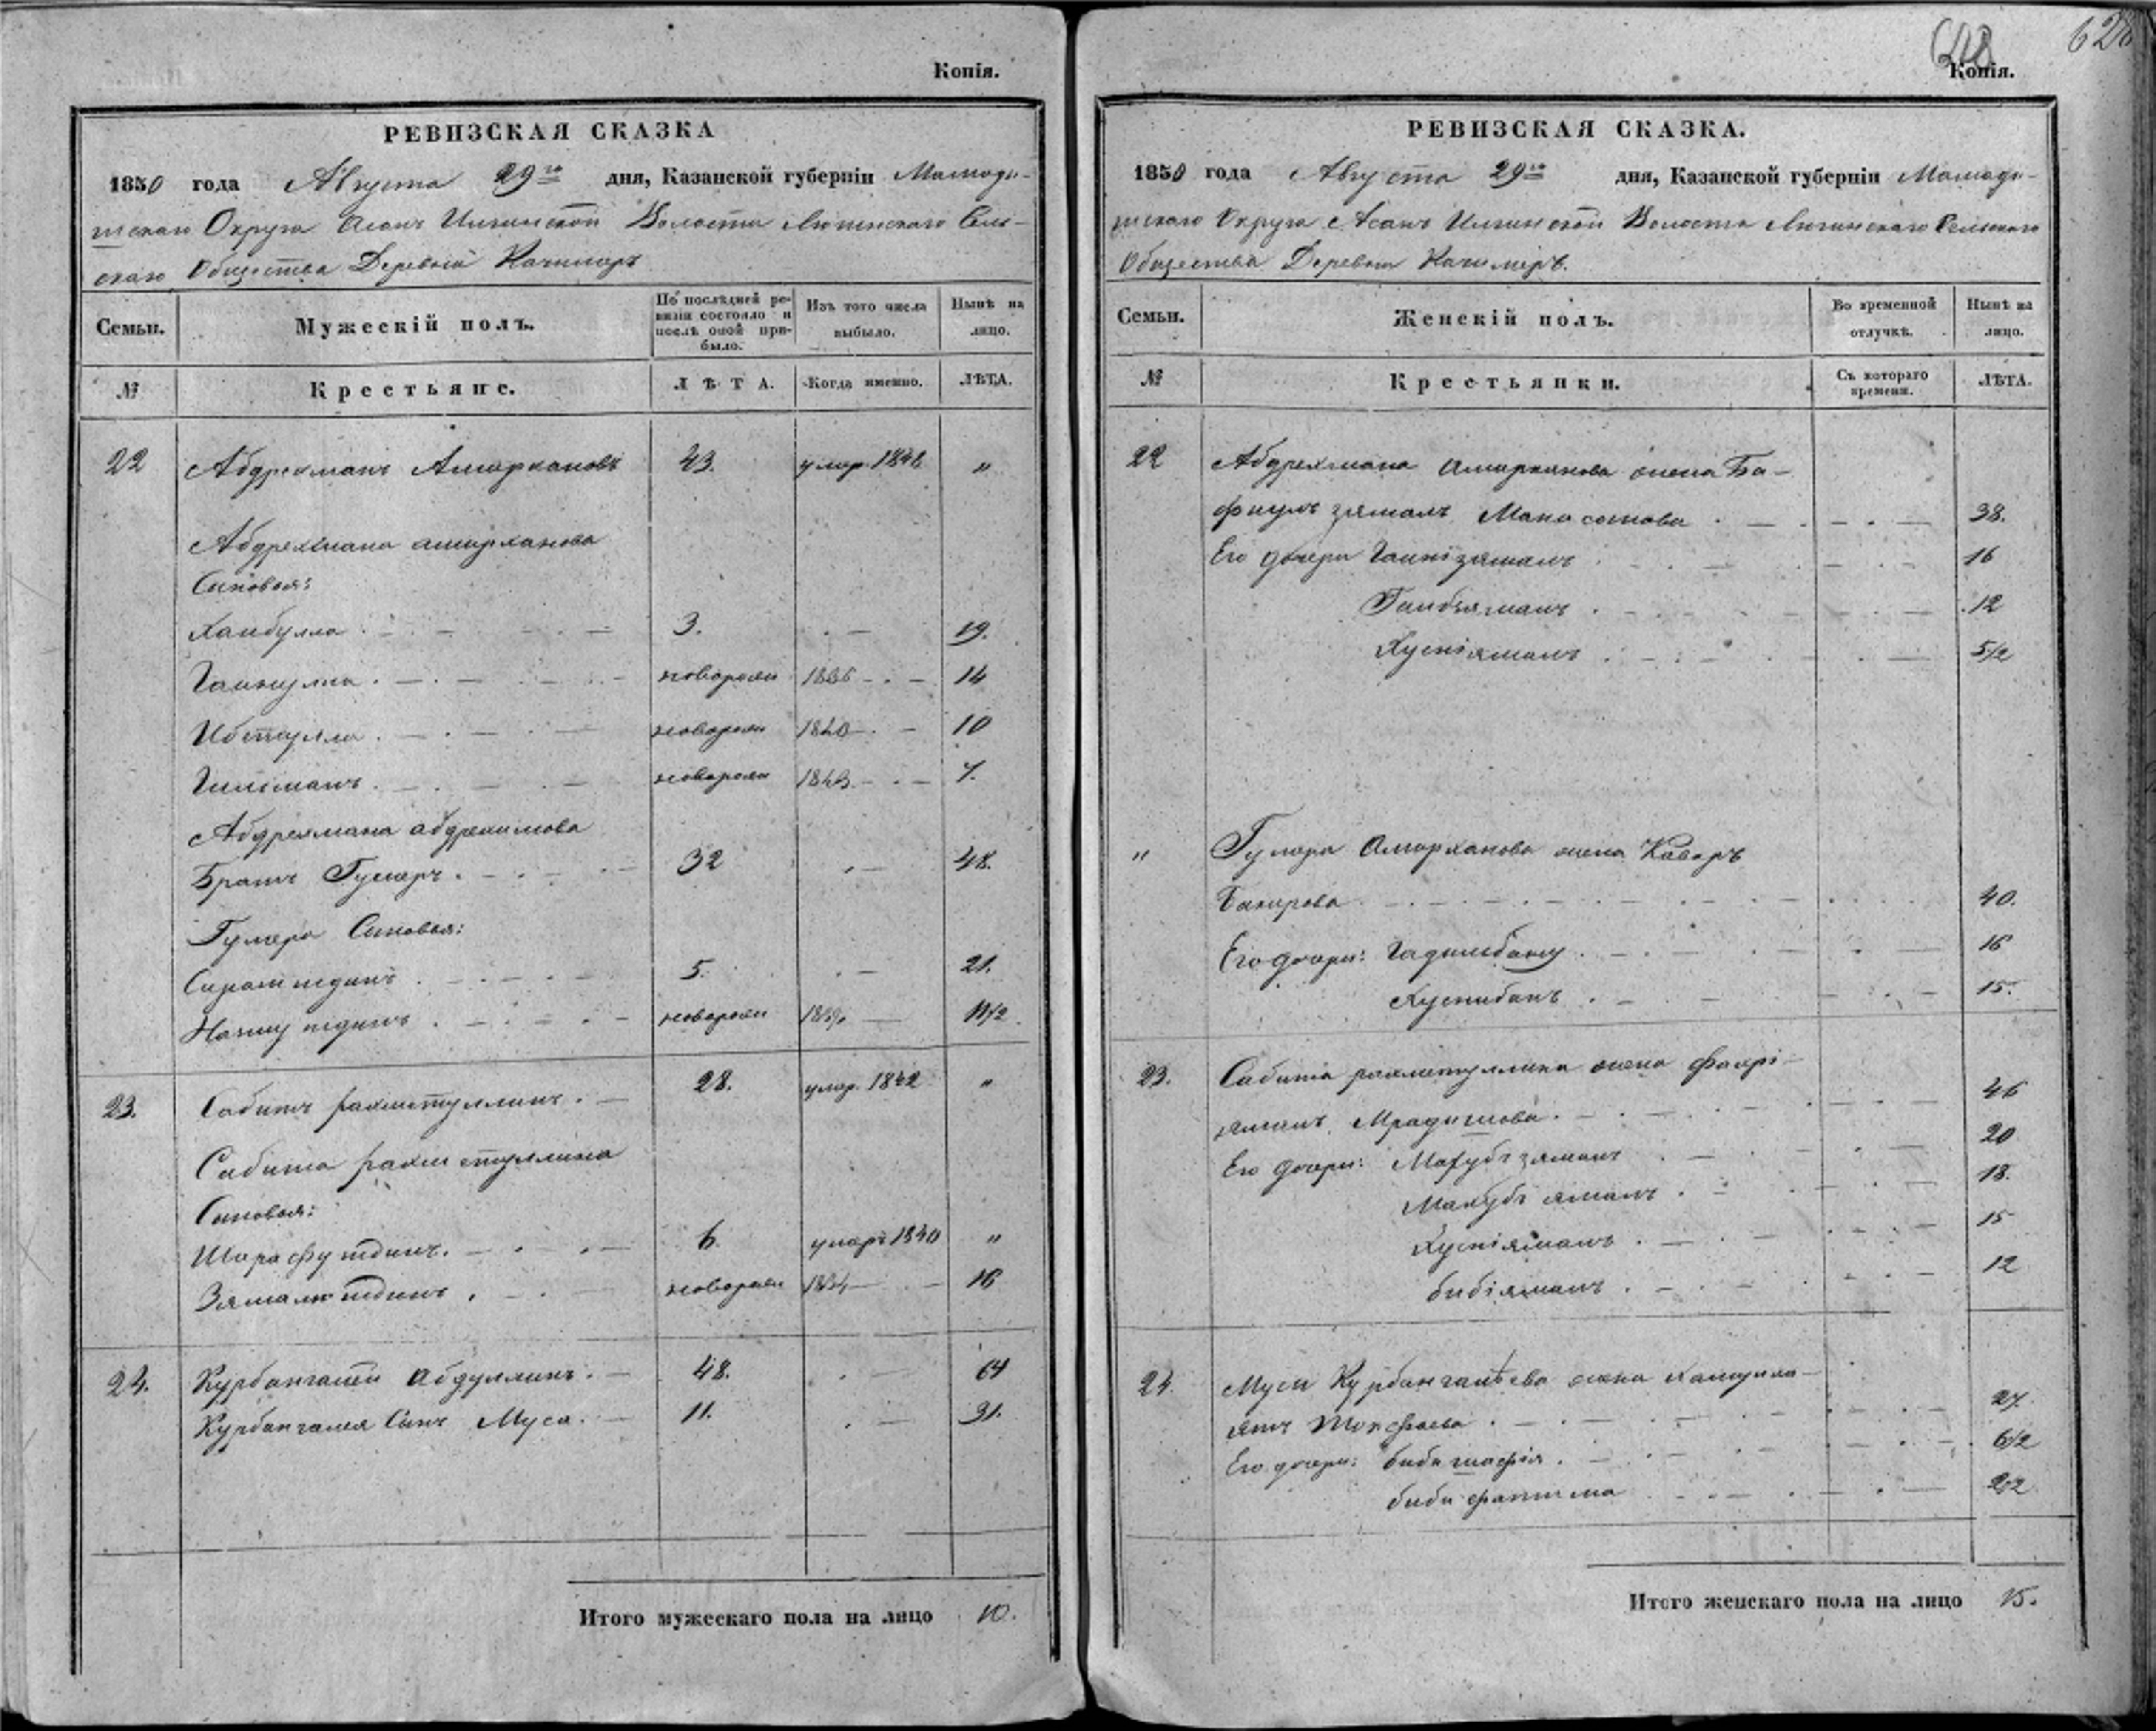 Копія.
РЕВИЗСКАЯ СКАЗКА
1850 года Августа 29го дня, Казанской губерніи Мамады-
шскаго Округа Асанъ Илгинской Волости Люгинскаго Сель-
скаго Общества Деревни Качимеръ
Семьи.
Мужескій полъ.
По послѣдней ре-
визіи состояло и
послѣ оной при-
было.
Изъ того числа
выбыло.
Нынѣ на
лицо.
№
Крестьяне.
ЛѢТА.
Когда именно.
ЛѢТА.
22 Абдрехманъ Амирхановъ 43. умер. 1848 "
Абдрехмана амирханова
Сыновья:
Хайбулла 3. 19.
новорожд 1836 14
Ибетулла новорожд 1840 10
новорожд 1843 7.
Абдрехмана абдрахимова
Братъ Гумеръ 32 48.
Гумера Сыновья:
Сиразитдинъ 5. 21.
новорожд 11/2
23. Сабитъ рахметуллинъ 28. умер. 1842 "
Сабита рахметуллина
Сыновья:
Шарафутдинъ 6 умеръ 1840 "
Зямалитдинъ новорожд 1834 16
24. Курбангалей Абдуллинъ 48. 64
Курбангалея Сынъ Муса 11. 31.
Итого мужескаго пола на лицо 10.
628
Копія.
РЕВИЗСКАЯ СКАЗКА.
1850 года Августа 29го дня, Казанской губерніи Мамады-
шскаго Округа Асанъ Илгинской Волости Люгинскаго Сельскаго
Общества Деревни Качимеръ.
Семьи.
Женскій полъ.
Во временной
отлучкѣ.
Нынѣ на
лицо.
№
Крестьянки.
Съ котораго
времени.
ЛѢТА.
22 Абдрехмана Амирханова жена Ба-
38.
Его дочери 16
12
Хусніямалъ 5/2
" Гумера Амирханова жена Каверъ
Бакирова 40.
Его дочери: Гадилбану 16
Хуснибанъ 15.
23. Сабита рахметуллина жена Фахрі-
46
Его дочери: Махубъ зямалъ 20
Махубъ ямалъ 18.
Хусніямалъ 15
бибіямалъ 12
24. Мусы Курбангалѣева жена
27.
Его дочери: биби 6/2
биби фатима 2/2
Итого женскаго пола на лицо 15.